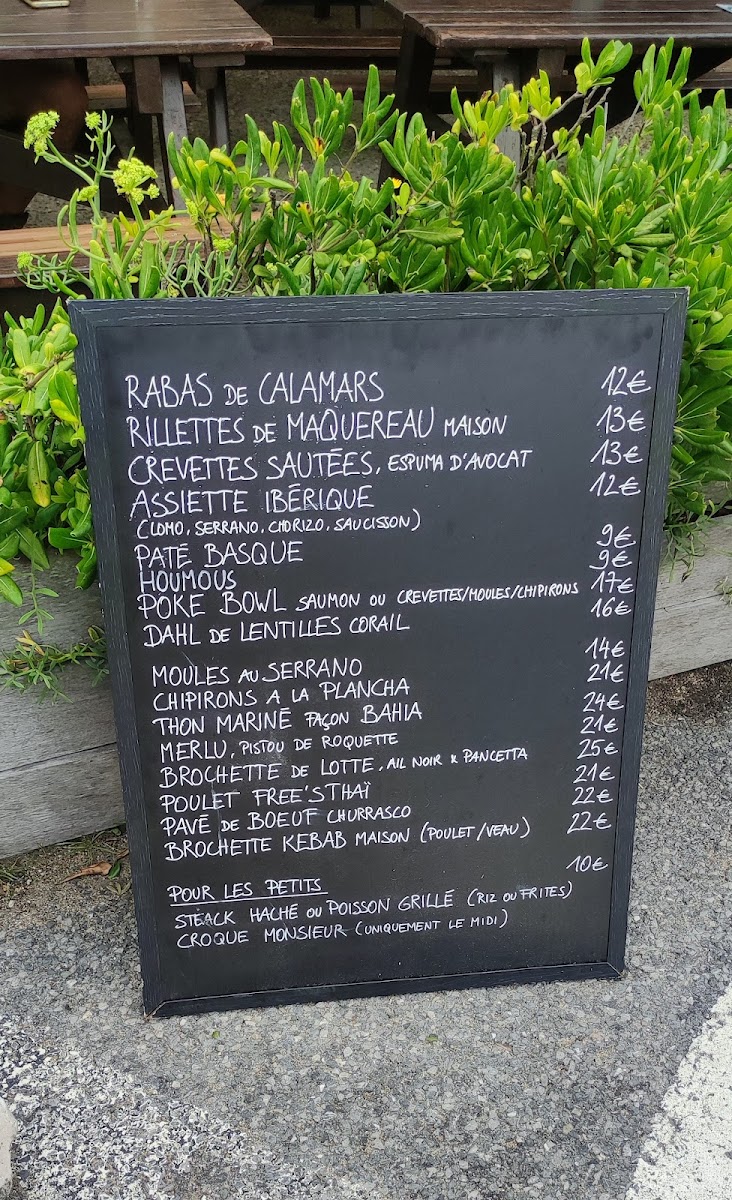 RABAS DE CALAMARS 12€
RILLETTES DE MAQUEREAU MAISON 13€
CREVETTES SAUTÉES, ESPUMA D'AVOCAT 13€
ASSIETTE IBÉRIQUE 12€
(LOMO, SERRANO, CHORIZO, SAUCISSON)
PATÉ BASQUE 9€
HOUMOUS 9€
POKE BOWL SAUMON OU CREVETTES/MOULES/CHIPIRONS 17€
DAHL DE LENTILLES CORAIL 16€
MOULES AU SERRANO 14€
CHIPIRONS A LA PLANCHA 21€
THON MARINÉ FAÇON BAHIA 24€
MERLU, PISTOU DE ROQUETTE 21€
BROCHETTE DE LOTTE, AIL NOIR & PANCETTA 25€
POULET FREE'STHAÏ 21€
PAVÉ DE BOEUF CHURRASCO 22€
BROCHETTE KEBAB MAISON (POULET/VEAU) 22€
POUR LES PETITS 10€
STEACK HACHÉ OU POISSON GRILLÉ (RIZ OU FRITES)
CROQUE MONSIEUR (UNIQUEMENT LE MIDI)